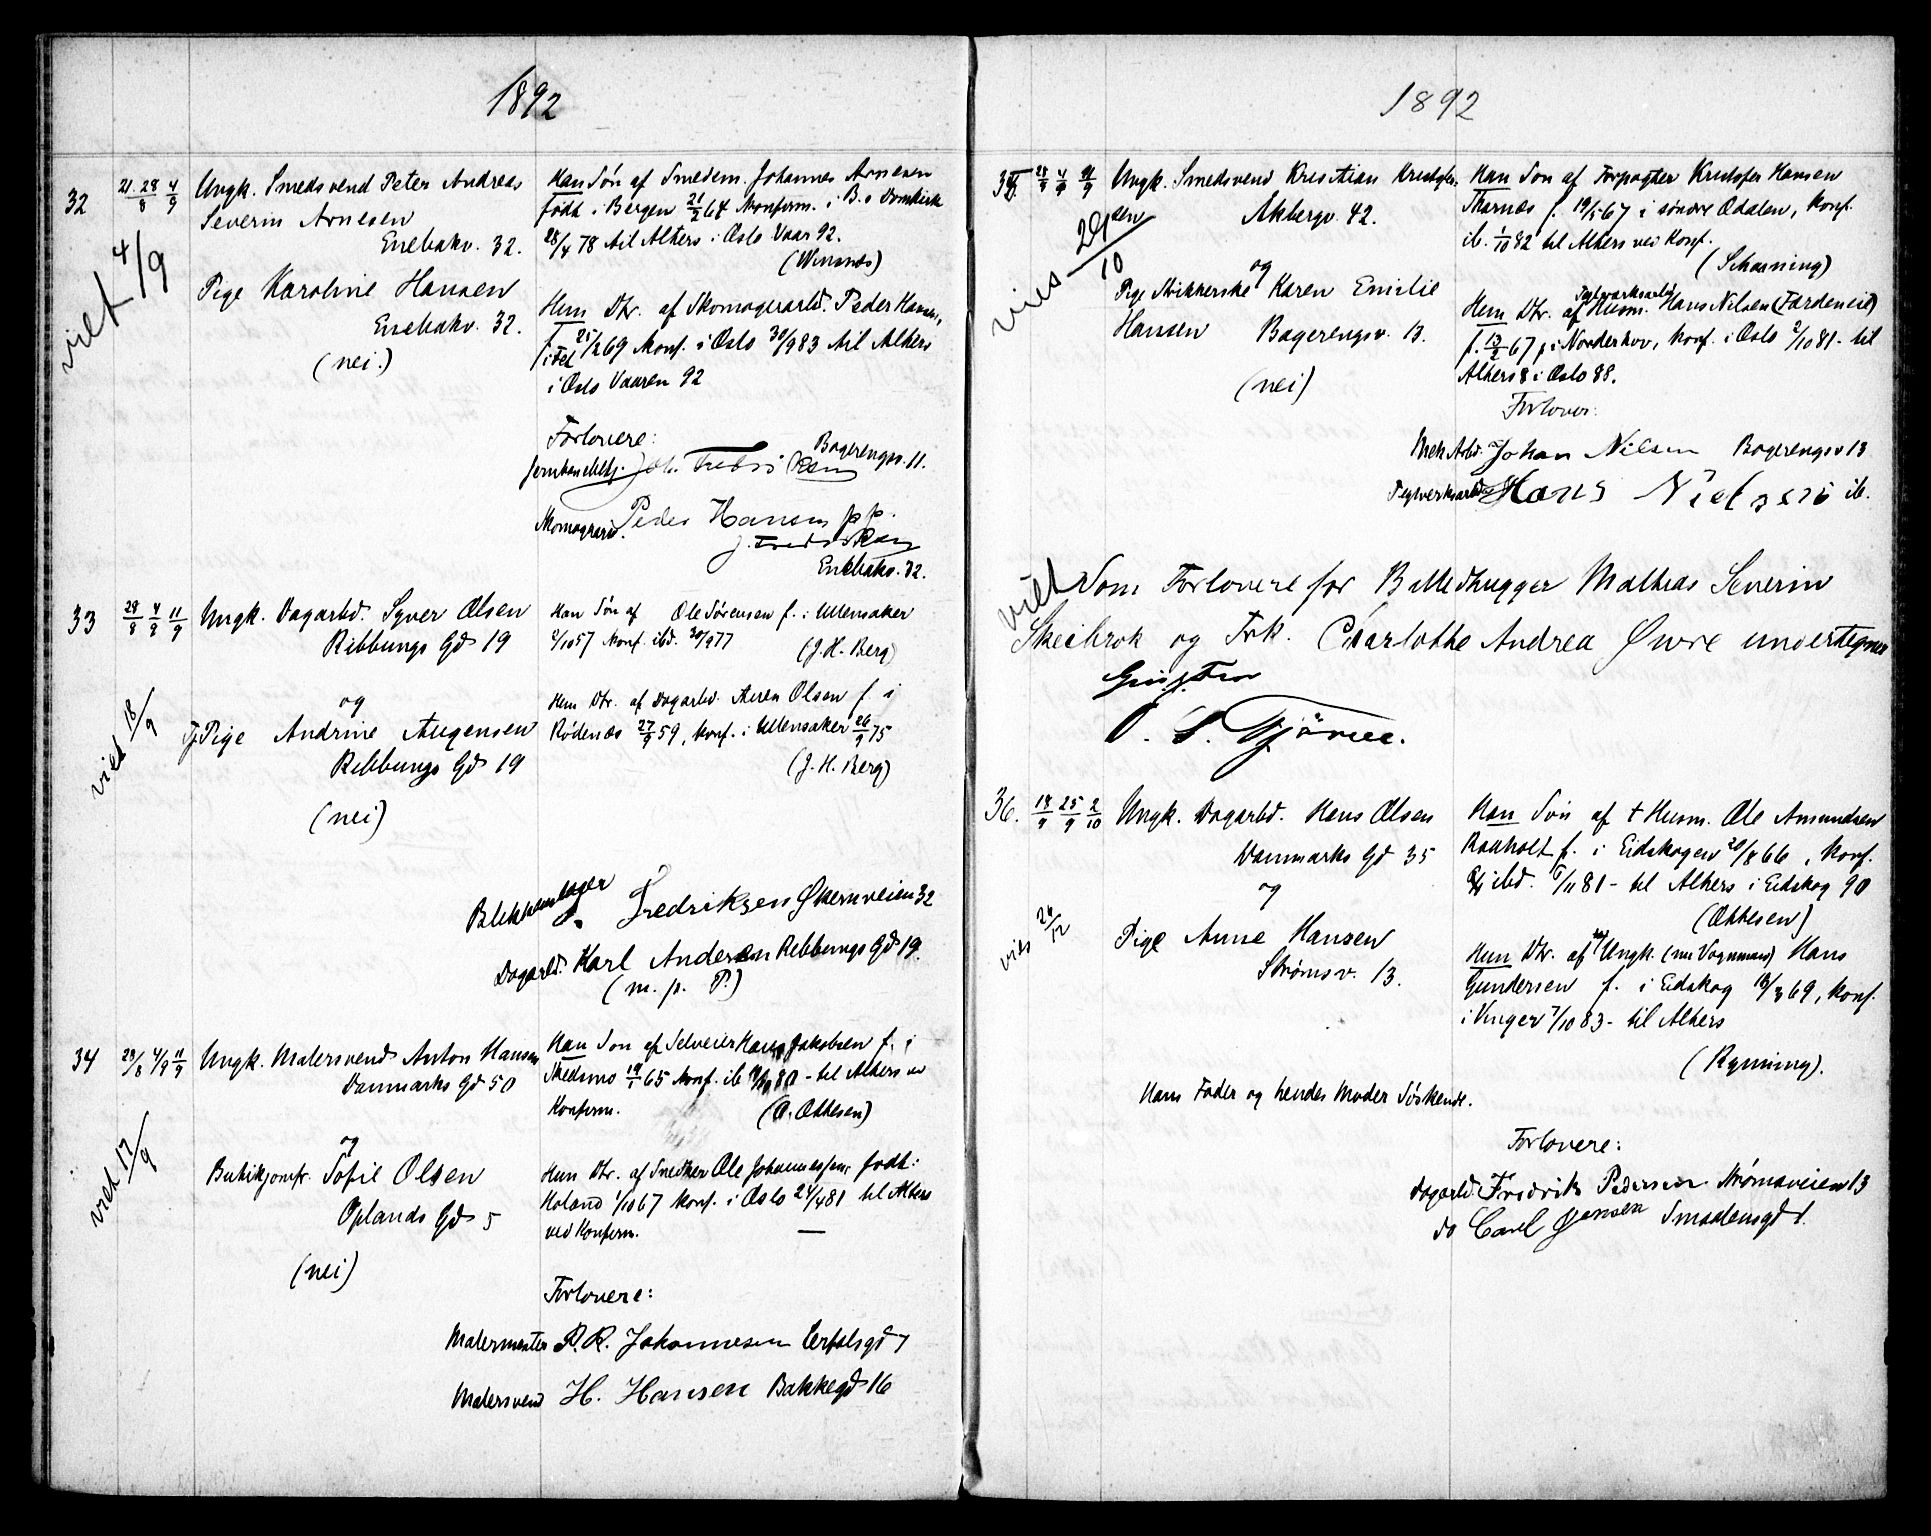 1892
32 21. 28/8 4/9 Ungk. Smedsvend Peter Andreas
Severin Arnesen
Enebakv. 32.
viet 4/9
Pige Karoline Hansen
Enebakv. 32.
(nei.)
Han Søn af Smedem. Johannes Arnesen
født i Bergen 21/2 64 Konfirm. i B.s Domkirk
28/4 78 til Alters i Oslo Vaar 92.
(Winsnes)
Hun Dtr. af Skomagerarbd. Peder Hansen,
f. 25/2 69 Konf. i Oslo 30/9 83 til Alters
i Oslo Vaaren 92
Forlovere:
Bagerengv. 11.
Skomagerarbd. Peder Hansen pp.
Enebakv. 32.
33 28/8 4/9 11/9 Ungk. Dagarbd. Syver Olsen
Ribbungs Gd 19
viet 18/9
og
Tj. Pige Andrine Augensen
Ribbungs Gd 19
(nei)
Han Søn af Ole Sørensen f. i Ullensaker
2/10 57 konf. ibd. 30/9 77
(J. H. Berg)
Hun Dtr. af Dagarbd. Auen Olsen f. i
Rødenæs 27/9 59, konf. i Ullensaker 26/9 75
(J. H. Berg)
Blikkenslager J. Fredriksen Økernveien 32
Dagarbd. Karl Andersen Ribbungs Gd 19.
(m. p. P.)
34 28/8 4/9 11/9 Ungk. Malersvend Anton Hansen
Danmarks Gd 50
viet 17/9
og
Butikjomfr. Sofie Olsen
Oplands Gd 5
(nei)
Han Søn af Selveier Hans Jakobsen f. i
Skedsmo 19/1 65 Konf. ib. 80 - til Alters ve
Konfirm.
(O. Ottesen)
Hun Dtr. af Snedker Ole Johannessen, født i
Høland 1/10 67 Konf. i Oslo 24/4 81 til Alters
ved Konfirm. —
Forlovere:
Malermester R. R. Johannesen
Malersvend H. Hansen Bakkegd 16
1892
28/8 4/9 11/9 Ungk. Smedsvend Kristian Kristofer
Akbergv. 42.
vies 29/10
og
Pige Strikkerske Karen Emilie
Hansen Bagerengv. 13.
(nei)
Han Søn af Forpagter Kristofer Hansen
Thornæs f. 19/5 67 i søndre Odalen, konf.
ib. 1/10 82 til Alters ved Konf.
(Schøning)
Teglverksarbd.
Hun Dtr. af Husm. Hans Nilsen (Fardeneie)
f. 13/2 67 i Norderhov, konf. i Oslo 2/10 81 - til
Alters i Oslo 88.
Forlover:
Mek Arbd. Johan Nilsen Bagerengv 13
Teglverksarbd. Hans Nielsen ib.
viet Som Forlovere for Billedhugger Mathias Severin
Skeibrok og Frk. Charlotte Andrea Øwre undertegner
O. S. Tjørne.
36. 18/9 25/9 2/10 Ungk. Dagarbd. Hans Olsen
Danmarks Gd 35
og
vies 26/12
Pige Anne Hansen
Strømsv. 13.
Han Søn af † Husm. Ole Amundsen
Raaholt f. i Eidskogen 20/8 66, konf.
ibd. 6/11 81 - til Alters i Eidskog 90
(Ottesen)
Hun Dtr. af Ungk. (nu Vognmand) Hans
Gundersen f. i Eidskog 18/3 69, konf.
i Vinger 7/10 83 - til Alters
(Rynning).
Hans Fader og hendes Moder Søskende.
Forlovere:
Dagarbd. Fredrik Pedersen Strømsveien 13
do Carl Jensen Smaalensgd 1.